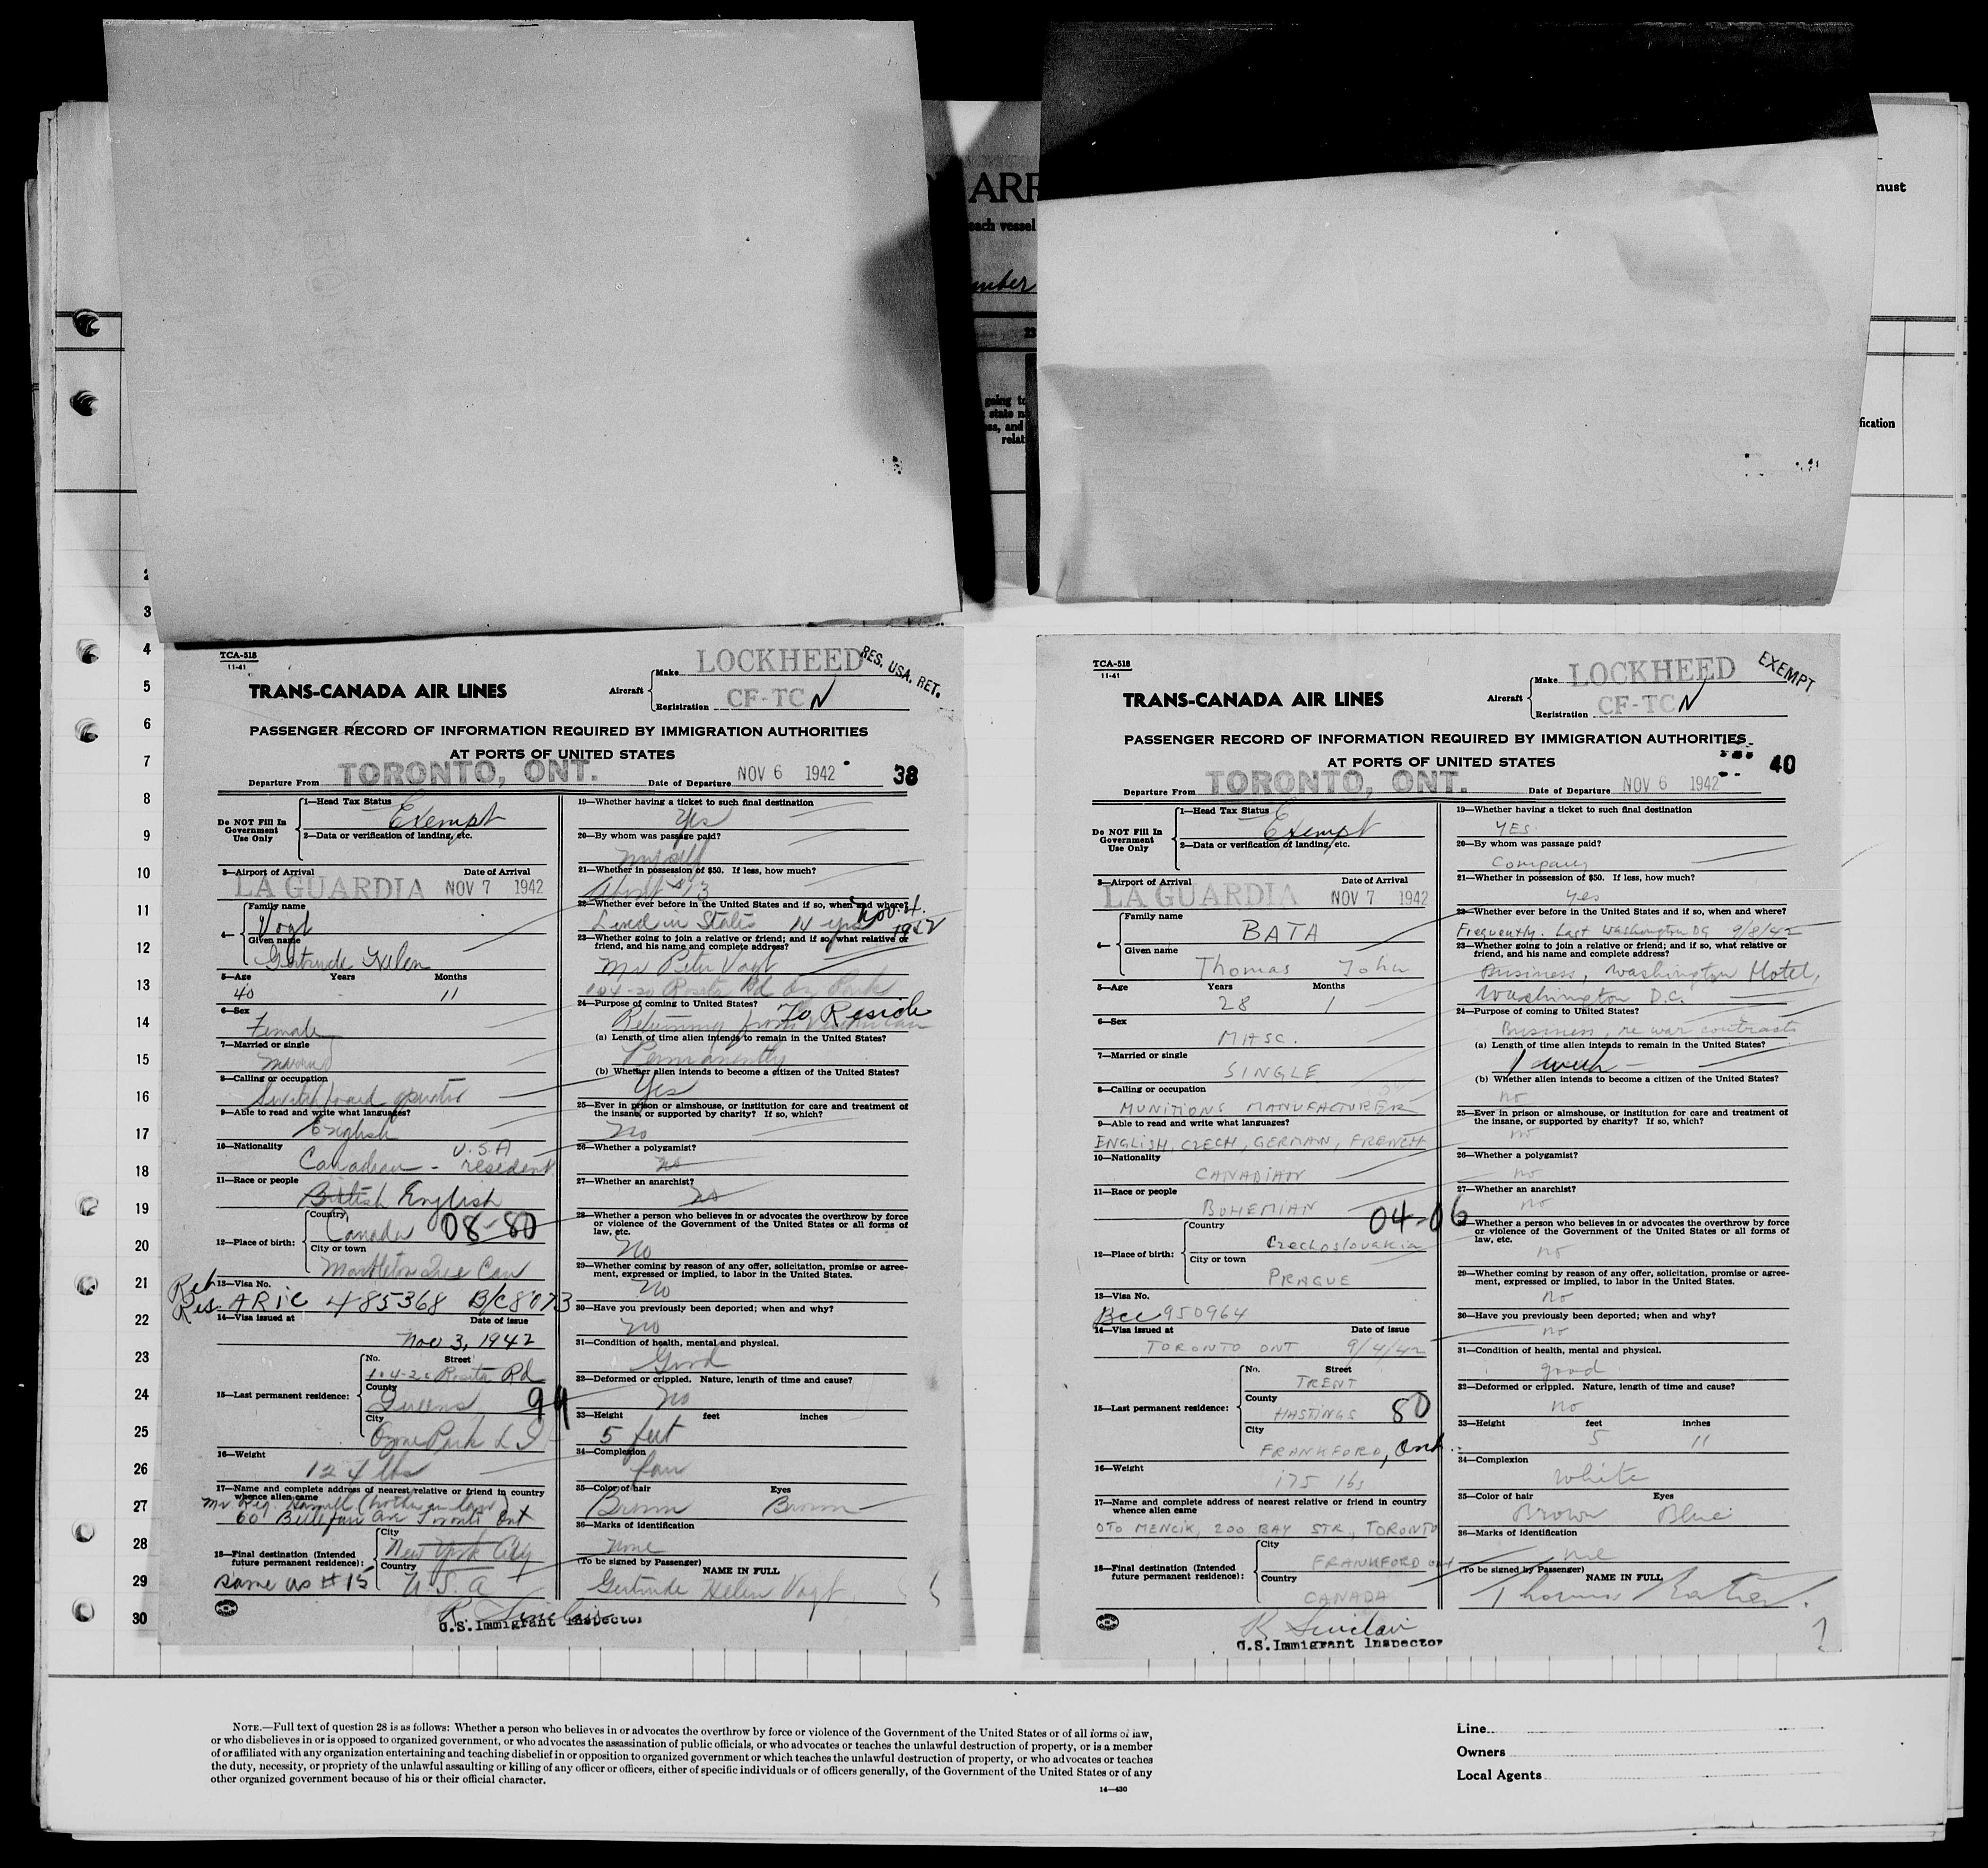 ARR
must
each vessel
mber
23
going to
state n
ss, and
relat
fication
2
3
4
5
6
7
8
9
10
11
12
13
14
15
16
17
18
19
20
21
22
23
24
25
26
27
28
29
30
TCA-518
11-41
TRANS-CANADA AIR LINES
Aircraft
Make LOCKHEED
Registration CF-TCN
RES. USA. RET.
PASSENGER RECORD OF INFORMATION REQUIRED BY IMMIGRATION AUTHORITIES
AT PORTS OF UNITED STATES
Departure From TORONTO, ONT. Date of Departure NOV 6 1942 38
Do NOT Fill In
Government
Use Only
1—Head Tax Status
Exempt
2—Data or verification of landing, etc.
3—Airport of Arrival Date of Arrival
LA GUARDIA NOV 7 1942
4—
Family name
Vogt
Given name
Gertrude Helen
5—Age Years Months
40 11
6—Sex
Female
7—Married or single
Married
8—Calling or occupation
Switchboard operator
9—Able to read and write what languages?
English
10—Nationality
Canadian - U.S.A resident
11—Race or people
British English
12—Place of birth:
Country
Canada 08-80
City or town
13—Visa No.
Ret
Res. ARIC 485368 B/C8073
14—Visa issued at Date of issue
Nov 3, 1942
15—Last permanent residence:
No. Street
104-20 Rosita Rd
County
Queens 94
City
Ozone Park L I
16—Weight
124 lbs
17—Name and complete address of nearest relative or friend in country
whence alien came
Mr Reg. (brother in law)
60 Bellefair Ave Toronto Ont
18—Final destination (Intended
future permanent residence):
same as #15
City
New York City
Country
U.S.A
R. Sinclair
U.S. Immigrant Inspector
19—Whether having a ticket to such final destination
Yes
20—By whom was passage paid?
myself
21—Whether in possession of $50. If less, how much?
About $73
22—Whether ever before in the United States and if so, when and where?
Lived in States 14 yrs Nov. 4. 1942
23—Whether going to join a relative or friend; and if so, what relative or
friend, and his name and complete address?
Mr Peter Vogt
104-20 Rosita Rd Oz Park
24—Purpose of coming to United States? To Reside
Returning from
(a) Length of time alien intends to remain in the United States?
Permanently
(b) Whether alien intends to become a citizen of the United States?
Yes
25—Ever in prison or almshouse, or institution for care and treatment of
the insane, or supported by charity? If so, which?
No
26—Whether a polygamist?
no
27—Whether an anarchist?
no
28—Whether a person who believes in or advocates the overthrow by force
or violence of the Government of the United States or all forms of
law, etc.
No
29—Whether coming by reason of any offer, solicitation, promise or agree-
ment, expressed or implied, to labor in the United States.
No
30—Have you previously been deported; when and why?
No
31—Condition of health, mental and physical.
Good
32—Deformed or crippled. Nature, length of time and cause?
no
33—Height feet inches
5 feet
34—Complexion
fair
35—Color of hair Eyes
Brown Brown
36—Marks of identification
None
(To be signed by Passenger) NAME IN FULL
Gertrude Helen Vogt
TCA-518
11-41
TRANS-CANADA AIR LINES
Aircraft
Make LOCKHEED
Registration CF-TCN
EXEMPT
PASSENGER RECORD OF INFORMATION REQUIRED BY IMMIGRATION AUTHORITIES
AT PORTS OF UNITED STATES
Departure From TORONTO, ONT. Date of Departure NOV 6 1942 40
Do NOT Fill In
Government
Use Only
1—Head Tax Status
Exempt
2—Data or verification of landing, etc.
3—Airport of Arrival Date of Arrival
LA GUARDIA NOV 7 1942
4—
Family name
BATA
Given name
Thomas John
5—Age Years Months
28 1
6—Sex
MASC.
7—Married or single
SINGLE
8—Calling or occupation
MUNITIONS MANUFACTURER
9—Able to read and write what languages?
ENGLISH, CZECH, GERMAN, FRENCH
10—Nationality
CANADIAN
11—Race or people
BOHEMIAN 04-06
12—Place of birth:
Country
Czechoslovakia
City or town
PRAGUE
13—Visa No.
Bcc 950964
14—Visa issued at Date of issue
TORONTO ONT 9/4/42
15—Last permanent residence:
No. Street
TRENT
County
HASTINGS 80
City
FRANKFORD, Ont.
16—Weight
175 lbs
17—Name and complete address of nearest relative or friend in country
whence alien came
OTO MENCIK, 200 BAY STR., TORONTO
18—Final destination (Intended
future permanent residence):
City
FRANKFORD ont
Country
CANADA
R Sinclair
U.S. Immigrant Inspector
19—Whether having a ticket to such final destination
YES
20—By whom was passage paid?
Company
21—Whether in possession of $50. If less, how much?
Yes
22—Whether ever before in the United States and if so, when and where?
Frequently. Last Washington DC 9/8/42
23—Whether going to join a relative or friend; and if so, what relative or
friend, and his name and complete address?
Business, Washington Hotel,
Washington D.C.
24—Purpose of coming to United States?
Business, re war contracts
(a) Length of time alien intends to remain in the United States?
1 week
(b) Whether alien intends to become a citizen of the United States?
no
25—Ever in prison or almshouse, or institution for care and treatment of
the insane, or supported by charity? If so, which?
no
26—Whether a polygamist?
no
27—Whether an anarchist?
no
Whether a person who believes in or advocates the overthrow by force
or violence of the Government of the United States or all forms of
law, etc.
no
29—Whether coming by reason of any offer, solicitation, promise or agree-
ment, expressed or implied, to labor in the United States.
no
30—Have you previously been deported; when and why?
no
31—Condition of health, mental and physical.
good
32—Deformed or crippled. Nature, length of time and cause?
no
33—Height feet inches
5 11
34—Complexion
white
35—Color of hair Eyes
Brown Blue
36—Marks of identification
(To be signed by Passenger) NAME IN FULL
Thomas
NOTE.—Full text of question 28 is as follows: Whether a person who believes in or advocates the overthrow by force or violence of the Government of the United States or of all forms of law,
or who disbelieves in or is opposed to organized government, or who advocates the assassination of public officials, or who advocates or teaches the unlawful destruction of property, or is a member
of or affiliated with any organization entertaining and teaching disbelief in or opposition to organized government or which teaches the unlawful destruction of property, or who advocates or teaches
the duty, necessity, or propriety of the unlawful assaulting or killing of any officer or officers, either of specific individuals or of officers generally, of the Government of the United States or of any
other organized government because of his or their official character.
14—430
Line
Owners
Local Agents